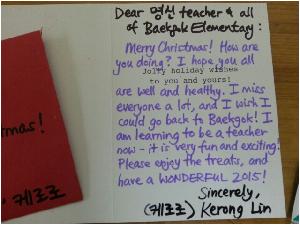 Dear 명신 teacher & all
of Baekgok Elementary:
Merry Christmas! How are
you doing? I hope you all
Jolly holiday wishes
to you and yours!
are well and healthy. I miss
everyone a lot, and I wish I
could go back to Baekgok! I
am learning to be a teacher
now - it is very fun and exciting.
Please enjoy the treats, and
have a WONDERFUL 2015!
Sincerely,
(케로로) Kerong Lin
mas!
케로로